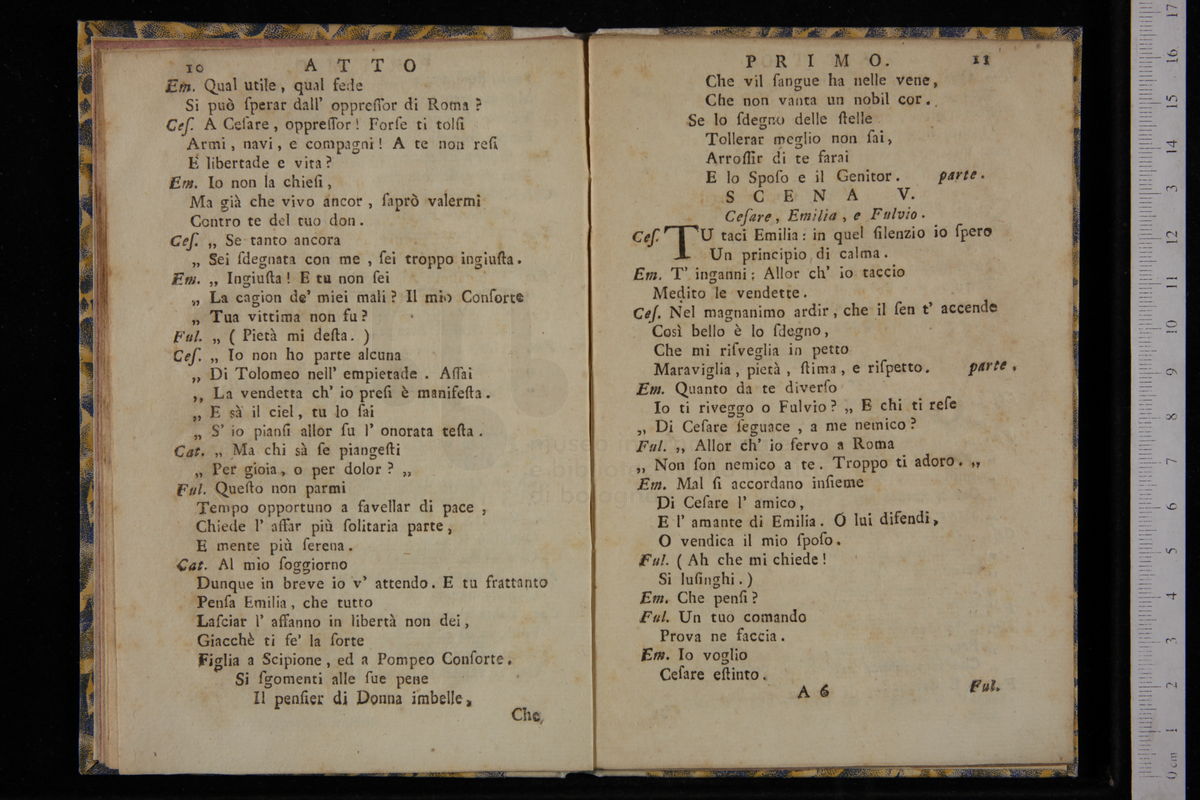 10 ATTO
Em. Qual utile, qual fede
Si può ſperar dall' oppreſſor di Roma?
Ceſ. A Ceſare, oppreſſor! Forſe ti tolſi
Armi, navi, e compagni! A te non reſi
E libertade e vita?
Em. Io non la chieſi,
Ma già che vivo ancor, ſaprò valermi
Contro te del tuo don.
Ceſ. „ Se tanto ancora
„ Sei ſdegnata con me, ſei troppo ingiuſta.
Em. „ Ingiuſta! E tu non ſei
„ La cagion de' miei mali? Il mio Conſorte
„ Tua vittima non fu?
Ful. „ (Pietà mi deſta.)
Ceſ. „ Io non ho parte alcuna
„ Di Tolomeo nell' empietade. Aſſai
„ La vendetta ch' io preſi è manifeſta.
„ E sà il ciel, tu lo ſai
„ S' io pianſi allor ſu l' onorata teſta.
Cat. „ Ma chi sà ſe piangeſti
„ Per gioia, o per dolor? „
Ful. Queſto non parmi
Tempo opportuno a favellar di pace,
Chiede l' affar più ſolitaria parte,
E mente più ſerena.
Cat. Al mio ſoggiorno
Dunque in breve io v' attendo. E tu frattanto
Penſa Emilia, che tutto
Laſciar l' affanno in libertà non dei,
Giacchè ti fe' la ſorte
Figlia a Scipione, ed a Pompeo Conſorte.
Si ſgomenti alle ſue pene
Il penſier di Donna imbelle,
Che
PRIMO. 11
Che vil ſangue ha nelle vene,
Che non vanta un nobil cor.
Se lo ſdegno delle ſtelle
Tollerar meglio non ſai,
Arroſſir di te farai
E lo Spoſo e il Genitor. parte.
SCENA V.
Ceſare, Emilia, e Fulvio.
Ceſ. TU taci Emilia: in quel ſilenzio io ſpero
Un principio di calma.
Em. T' inganni: Allor ch' io taccio
Medito le vendette.
Ceſ. Nel magnanimo ardir, che il ſen t' accende
Così bello è lo ſdegno,
Che mi riſveglia in petto
Maraviglia, pietà, ſtima, e riſpetto. parte.
Em. Quanto da te diverſo
Io ti riveggo o Fulvio? „ E chi ti reſe
„ Di Ceſare ſeguace, a me nemico?
Ful. „ Allor ch' io ſervo a Roma
„ Non ſon nemico a te. Troppo ti adoro. „
Em. Mal ſi accordano inſieme
Di Ceſare l' amico,
E l' amante di Emilia. O lui difendi,
O vendica il mio ſpoſo.
Ful. (Ah che mi chiede!
Si luſinghi.)
Em. Che penſi?
Ful. Un tuo comando
Prova ne faccia.
Em. Io voglio
Ceſare eſtinto.
A 6 Ful.